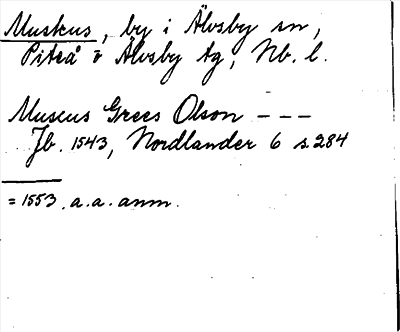 Muskus, by i Älvsby sn,
Piteå o Älvsby tg, Nb. l.
Muscus Grees Olson ---
Jb. 1543, Nordlander 6 s. 284
= 1553. a. a. anm.